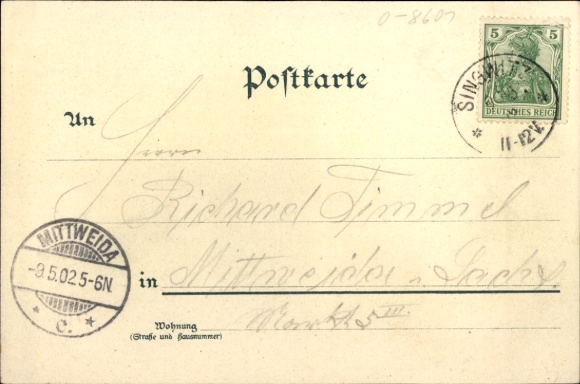 Postkarte
5 5
DEUTSCHES REICH
SINGWITZ
11-12V.
An Herrn
Richard Timmel
MITTWEIDA
-9.5.02.5-6N.
* C. *
in Mittweida i. Sachs.
Wohnung
(Straße und Hausnummer)
Markt III